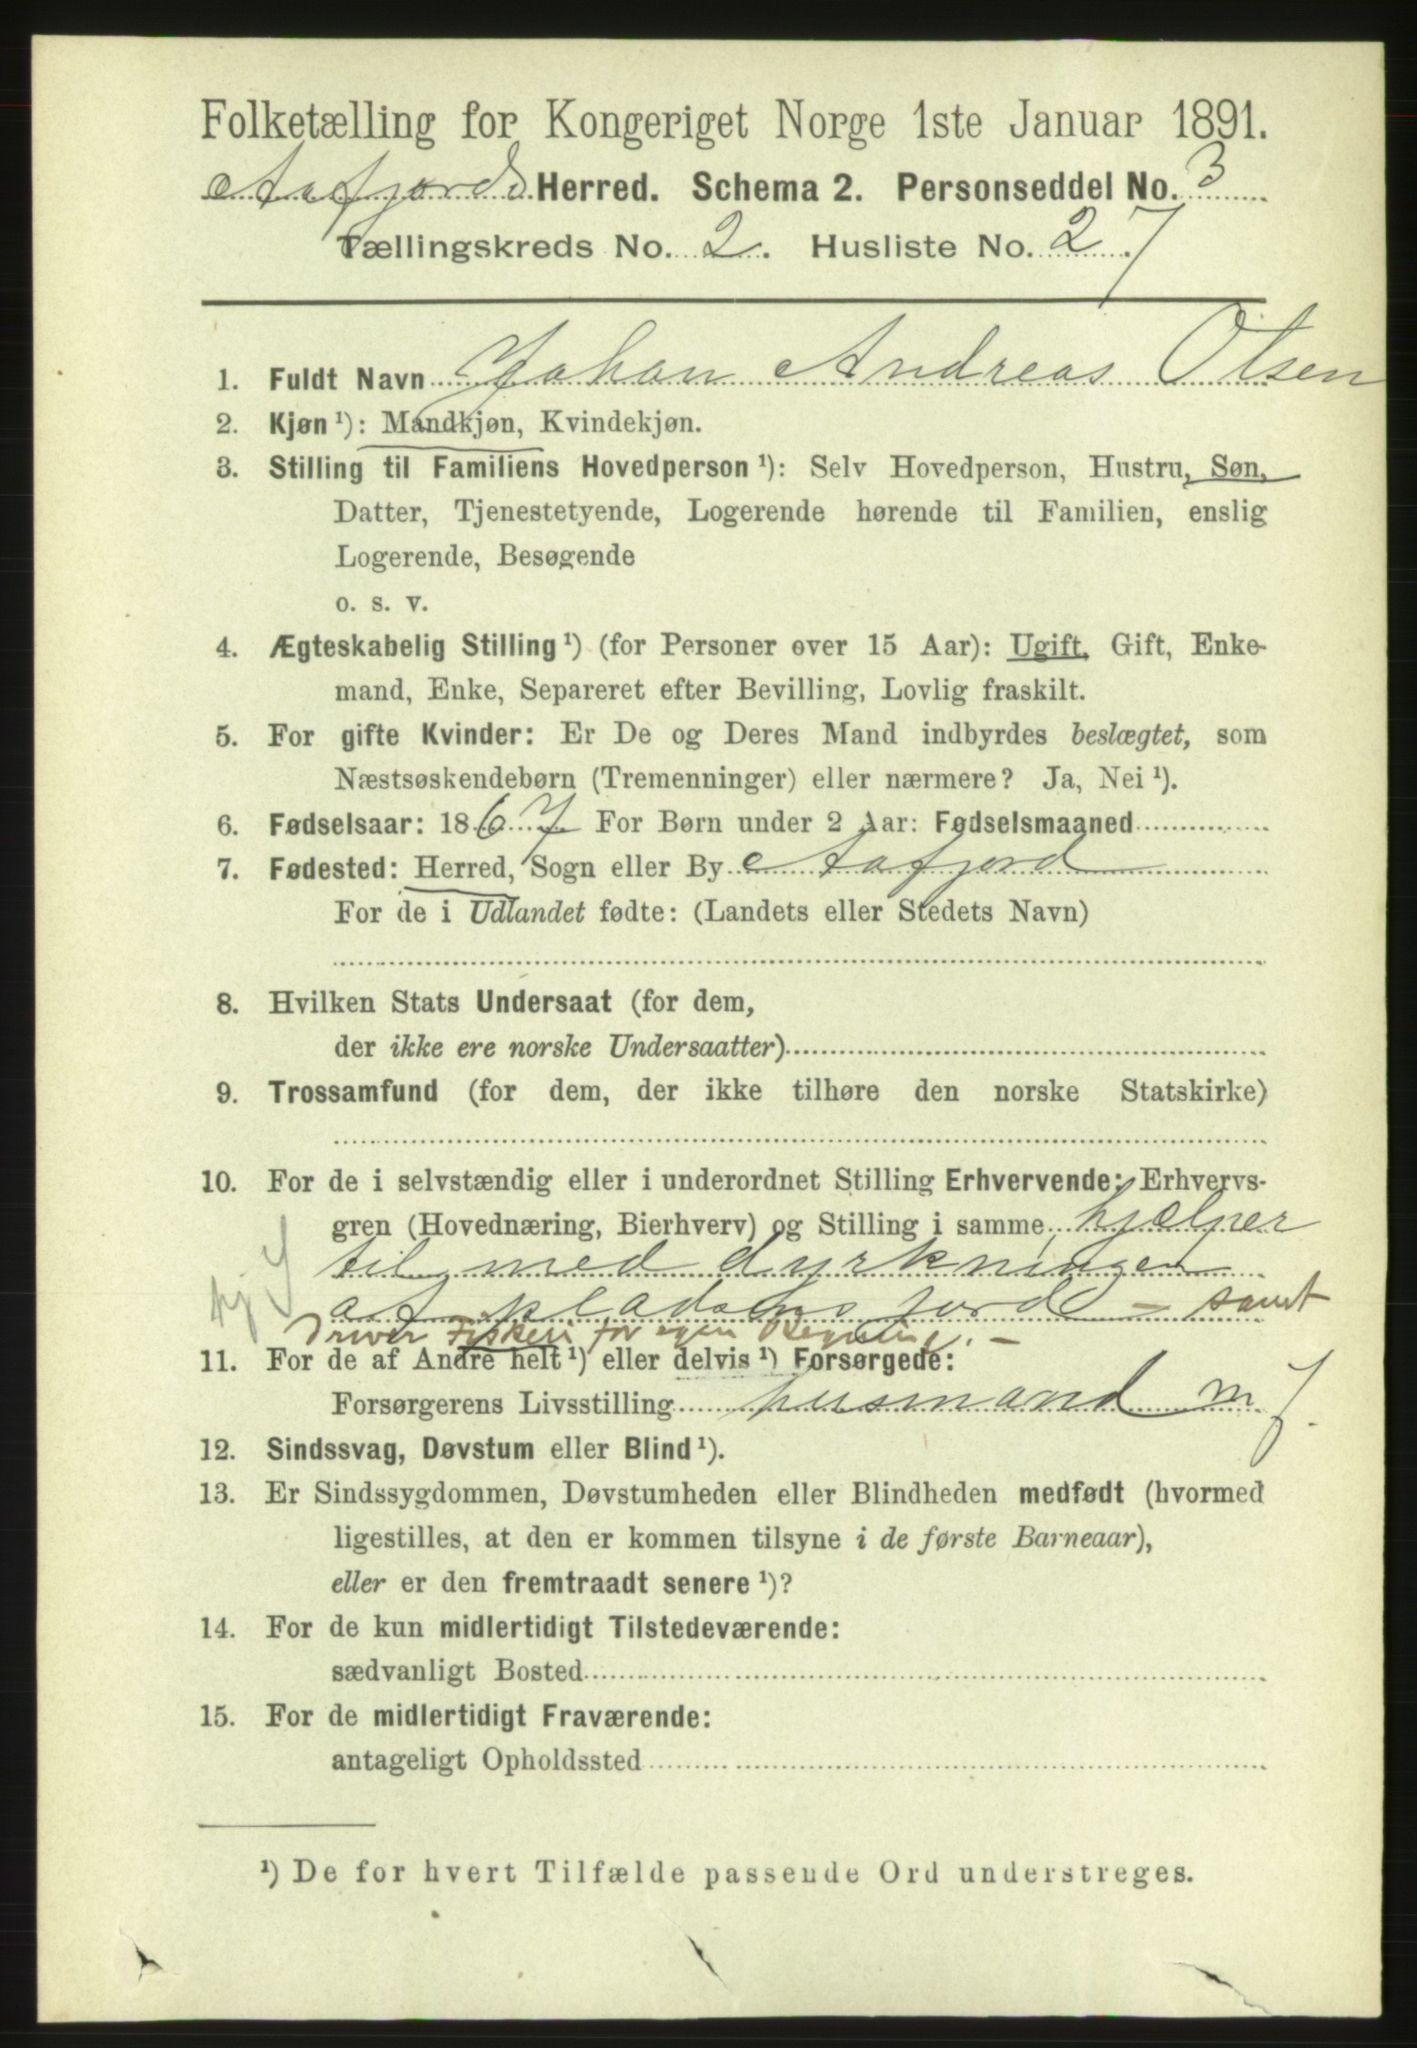 Folketælling for Kongeriget Norge 1ste Januar 1891.
Aafjords Herred. Schema 2. Personseddel No. 3
Tællingskreds No. 2. Husliste No. 27
1. Fuldt Navn Johan Andreas Olsen
2. Kjøn ¹): Mandkjøn, Kvindekjøn.
3. Stilling til Familiens Hovedperson ¹): Selv Hovedperson, Hustru, Søn,
Datter, Tjenestetyende, Logerende hørende til Familien, enslig
Logerende, Besøgende
o. s. v.
4. Ægteskabelig Stilling ¹) (for Personer over 15 Aar): Ugift, Gift, Enke-
mand, Enke, Separeret efter Bevilling, Lovlig fraskilt.
5. For gifte Kvinder: Er De og Deres Mand indbyrdes beslægtet, som
Næstsøskendebørn (Tremenninger) eller nærmere? Ja, Nei ¹).
6. Fødselsaar: 1867 For Børn under 2 Aar: Fødselsmaaned
7. Fødested: Herred, Sogn eller By Aafjord
For de i Udlandet fødte: (Landets eller Stedets Navn)
8. Hvilken Stats Undersaat (for dem,
der ikke ere norske Undersaatter)
9. Trossamfund (for dem, der ikke tilhøre den norske Statskirke)
10. For de i selvstændig eller i underordnet Stilling Erhvervende: Erhvervs-
gren (Hovednæring, Bierhverv) og Stilling i samme hjælper
til med dyrkningen
af pladsens jord - samt
Driver Fiskeri for egen Regning. -
11. For de af Andre helt ¹) eller delvis ¹) Forsørgede:
Forsørgerens Livsstilling husmand m j.
12. Sindssvag, Døvstum eller Blind ¹).
13. Er Sindssygdommen, Døvstumheden eller Blindheden medfødt (hvormed
ligestilles, at den er kommen tilsyne i de første Barneaar),
eller er den fremtraadt senere ¹)?
14. For de kun midlertidigt Tilstedeværende:
sædvanligt Bosted
15. For de midlertidigt Fraværende:
antageligt Opholdssted
¹) De for hvert Tilfælde passende Ord understreges.